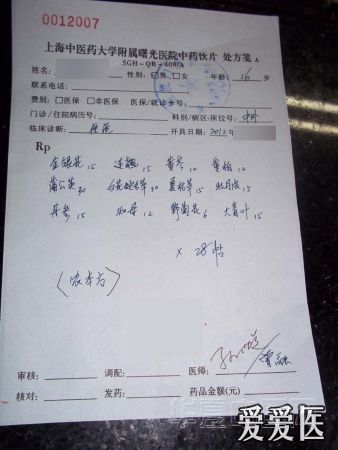 0012007
上海中医药大学附属曙光医院中药饮片 处方笺 A
SGH-QR-409/A
姓名: 性别: □男 □女 年龄: 16 岁
联系电话:
费别: □医保 □非医保 医保/就诊卡号:
门诊/住院病历号: 科别/病区-床位号: 中外
临床诊断: 痤疮 开具日期: 2012年
Rp
金银花 15 连翘 15 黄芩 12 黄柏 12
蒲公英 30 白花蛇舌草 30 夏枯草 15 牡丹皮 15
丹参 15 知母 12 野菊花 6 大青叶 15
× 28帖
审核: 调配: 医师:
核对: 发药: 药品金额(元)
爱爱医